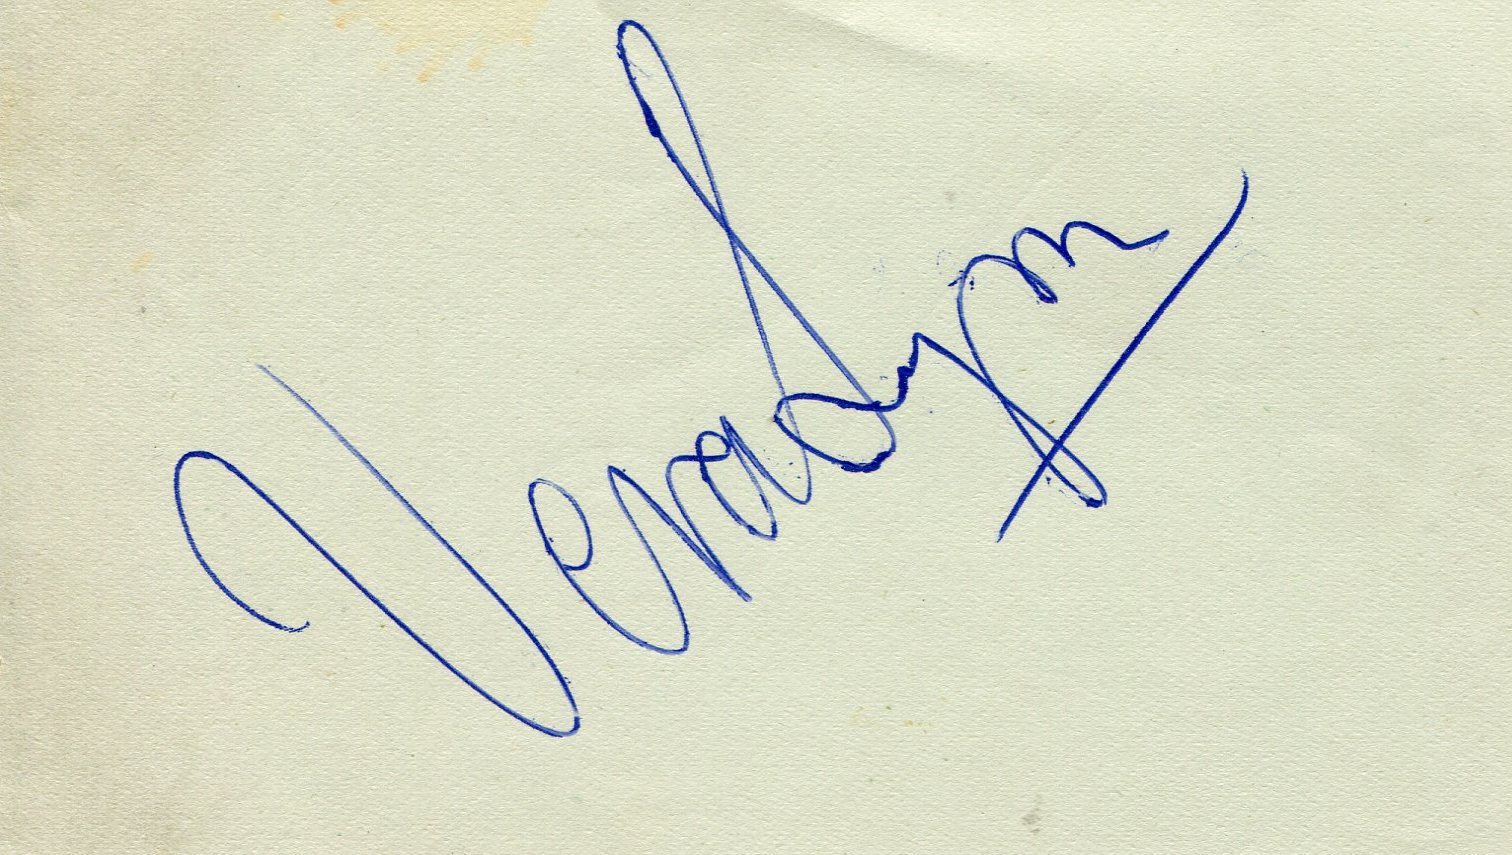 Vera Lynn